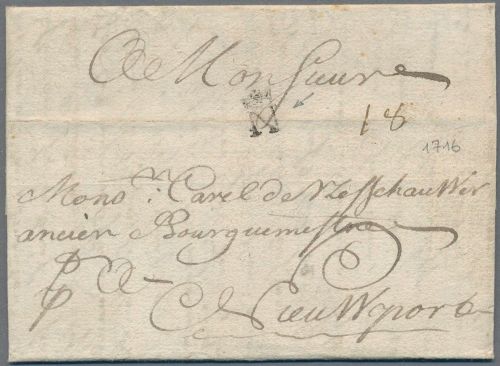 A Monsieur
18
1716
Monsr: Carel de
ancien Bourguemestre
A
Nieuwport